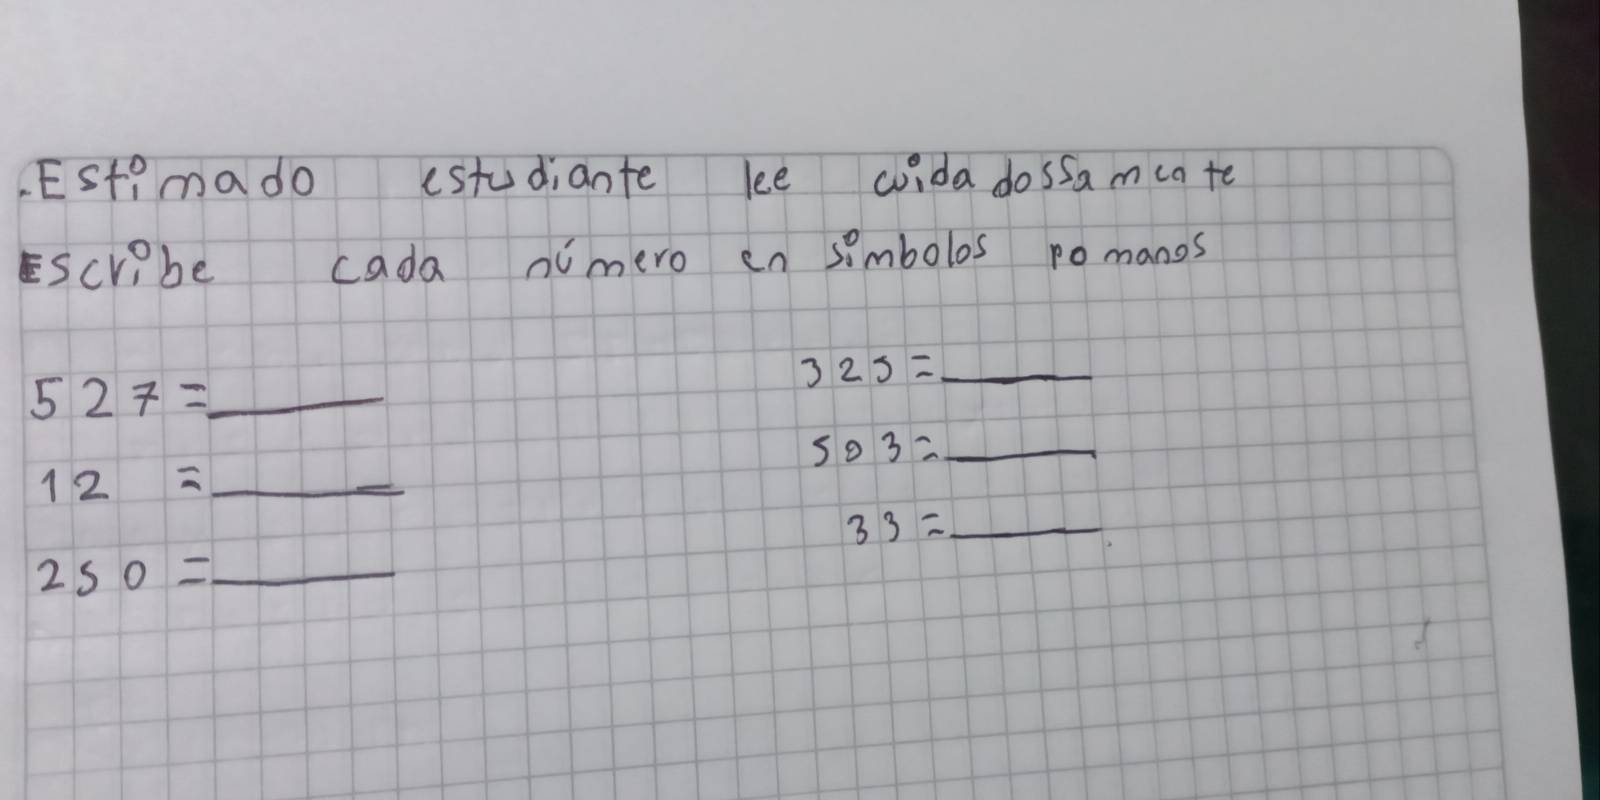 .Estimado estudiante lee cuidadossamente
Escribe cada número en símbolos romanos
527=____
12 =____
250 =____
325=____
503=____
33=____.